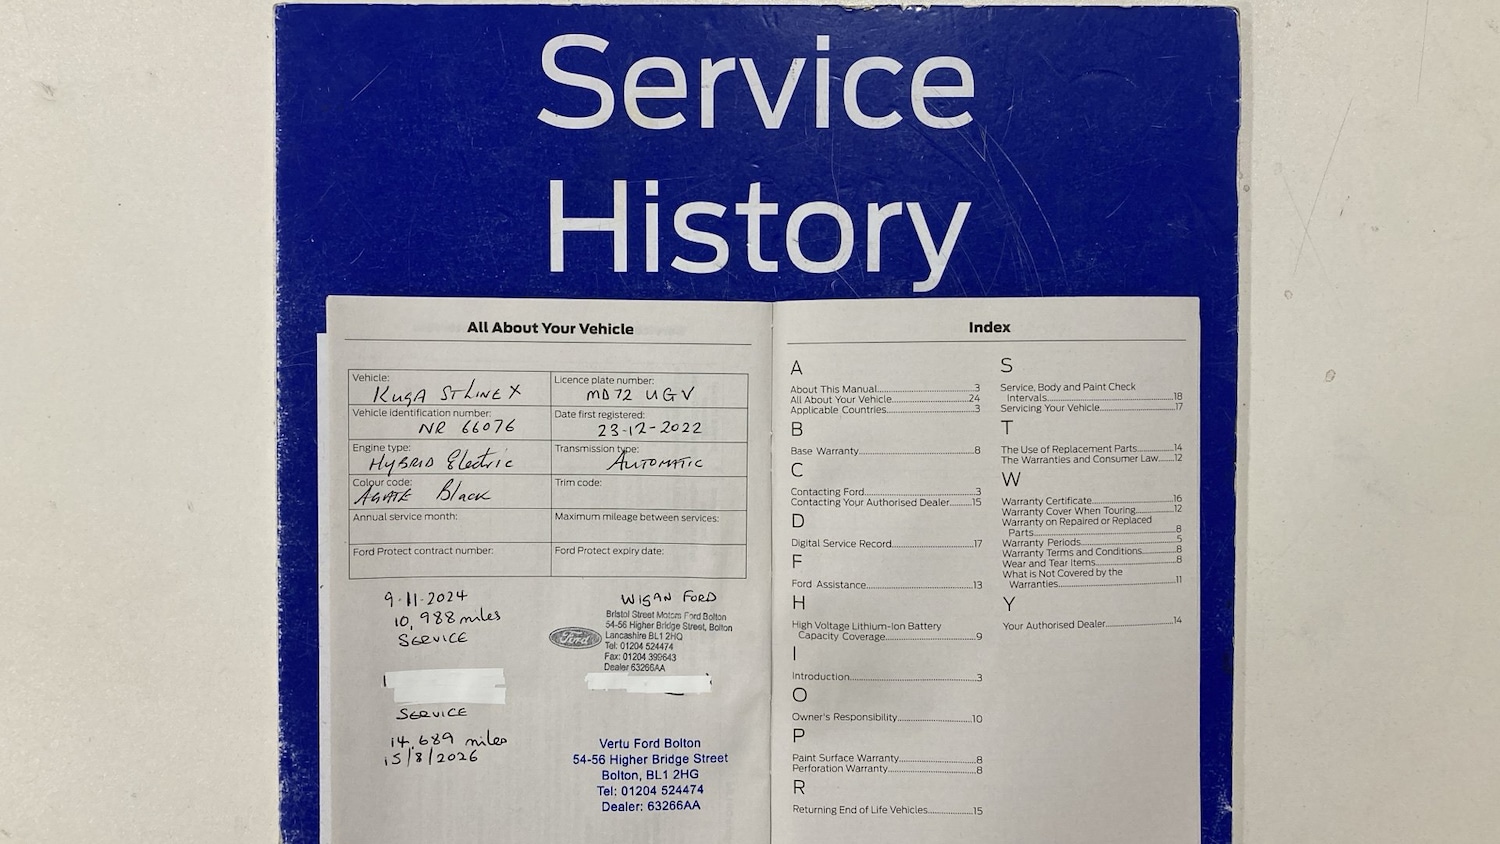 Service
History
All About Your Vehicle
Vehicle:
KUGA ST LINE X
Licence plate number:
MD72 UGV
Vehicle identification number:
NR 66076
Date first registered:
23-12-2022
Engine type:
HYBRID Electric
Transmission type:
AUTOMATIC
Colour code:
AGATE Black
Trim code:
Annual service month:
Maximum mileage between services:
Ford Protect contract number:
Ford Protect expiry date:
9-11-2024
10,988 miles
SERVICE
WIGAN FORD
Ford
Bristol Street Motors Ford Bolton
54-56 Higher Bridge Street, Bolton
Lancashire BL1 2HQ
Tel: 01204 524474
Fax: 01204 399643
Dealer 63266AA
SERVICE
14,689 miles
15/8/2026
Vertu Ford Bolton
54-56 Higher Bridge Street
Bolton, BL1 2HG
Tel: 01204 524474
Dealer: 63266AA
Index
A
About This Manual 3
All About Your Vehicle 24
Applicable Countries 3
B
Base Warranty 8
C
Contacting Ford 3
Contacting Your Authorised Dealer 15
D
Digital Service Record 17
F
Ford Assistance 13
H
High Voltage Lithium-Ion Battery
Capacity Coverage 9
I
Introduction 3
O
Owner's Responsibility 10
P
Paint Surface Warranty 8
Perforation Warranty 8
R
Returning End of Life Vehicles 15
S
Service, Body and Paint Check
Intervals 18
Servicing Your Vehicle 17
T
The Use of Replacement Parts 14
The Warranties and Consumer Law 12
W
Warranty Certificate 16
Warranty Cover When Touring 12
Warranty on Repaired or Replaced
Parts 8
Warranty Periods 5
Warranty Terms and Conditions 8
Wear and Tear Items 8
What is Not Covered by the
Warranties 11
Y
Your Authorised Dealer 14